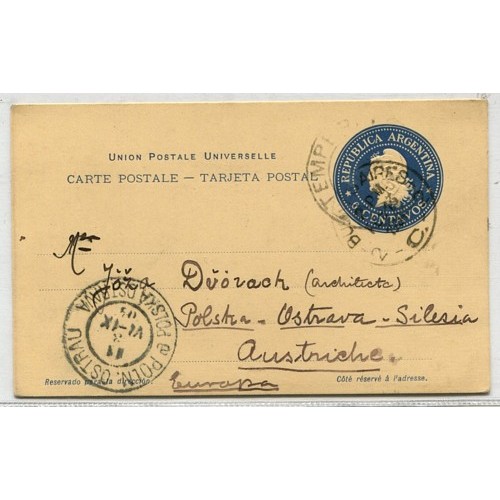 UNION POSTALE UNIVERSELLE
CARTE POSTALE — TARJETA POSTAL
REPUBLICA ARGENTINA
6 CENTAVOS
AIRES
Mr
Dvörach (architecte)
Polska - Ostrava - Silesia
Austriche.
Europa
POLN. OSTRAU
POLSKA OSTRAVA
Reservado para la dirección.
Côté réservé à l'adresse.